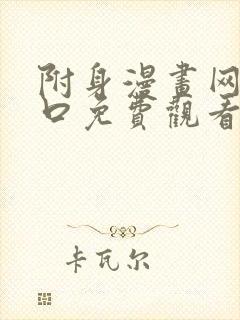 附身漫畫网
口免費觀看
卡瓦尔